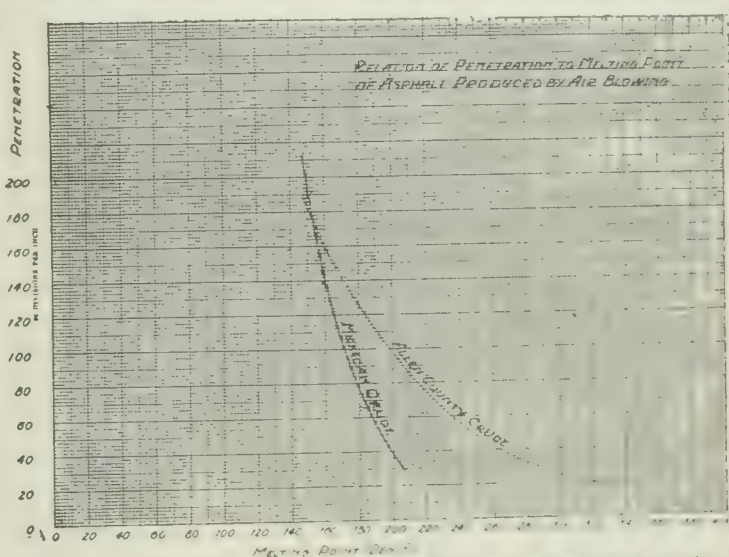 RELATION OF PENETRATION TO MELTING POINT
OF ASPHALT PRODUCED BY AIR BLOWING
PENETRATION
200
180
160
140
120
100
80
60
40
20
0
MEXICAN CRUDE
ALLEN COUNTY CRUDE
0 20 40 60 80 100 120 140 160 180 200 220
MELTING POINT